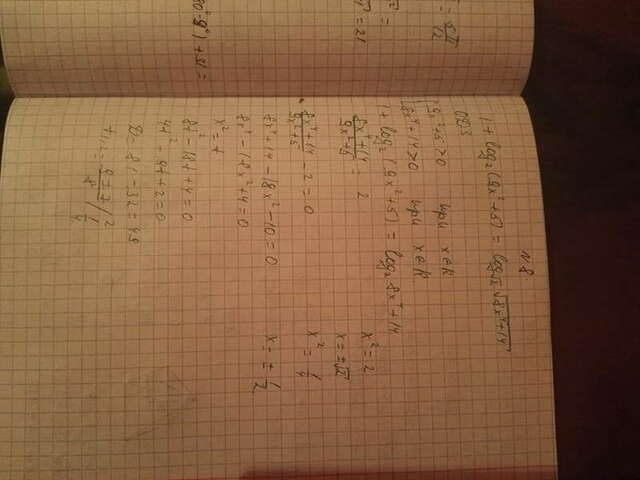 = 5π/12
= 21
80°-9°) + 51 =
N8
1 + log₂(9x²+5) = log_√2 √(8x⁴+14)
ОДЗ
{ 9x²+5>0 при x∈R
8x⁴+14>0 при x∈R
1 + log₂(9x²+5) = log₂ 8x⁴+14
(8x⁴+14)/(9x²+5) = 2
(8x⁴+14)/(9x²+5) - 2 = 0
8x⁴+14-18x²-10=0
8x⁴-18x²+4=0
x² = t
8t²-18t+4=0
4t²-9t+2=0
D = 81-32 = 49
t₁,₂ = (9±7)/8 / 2
1/4
x² = 2
x = ±√2
x² = 1/4
x = ± 1/2